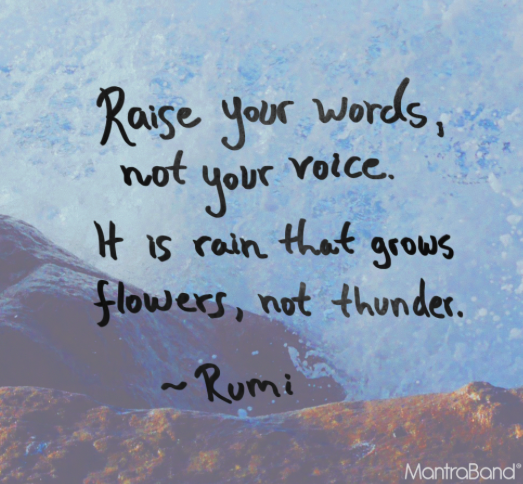 Raise your words,
not your voice.
It is rain that grows
flowers, not thunder.
~ Rumi
MantraBand®